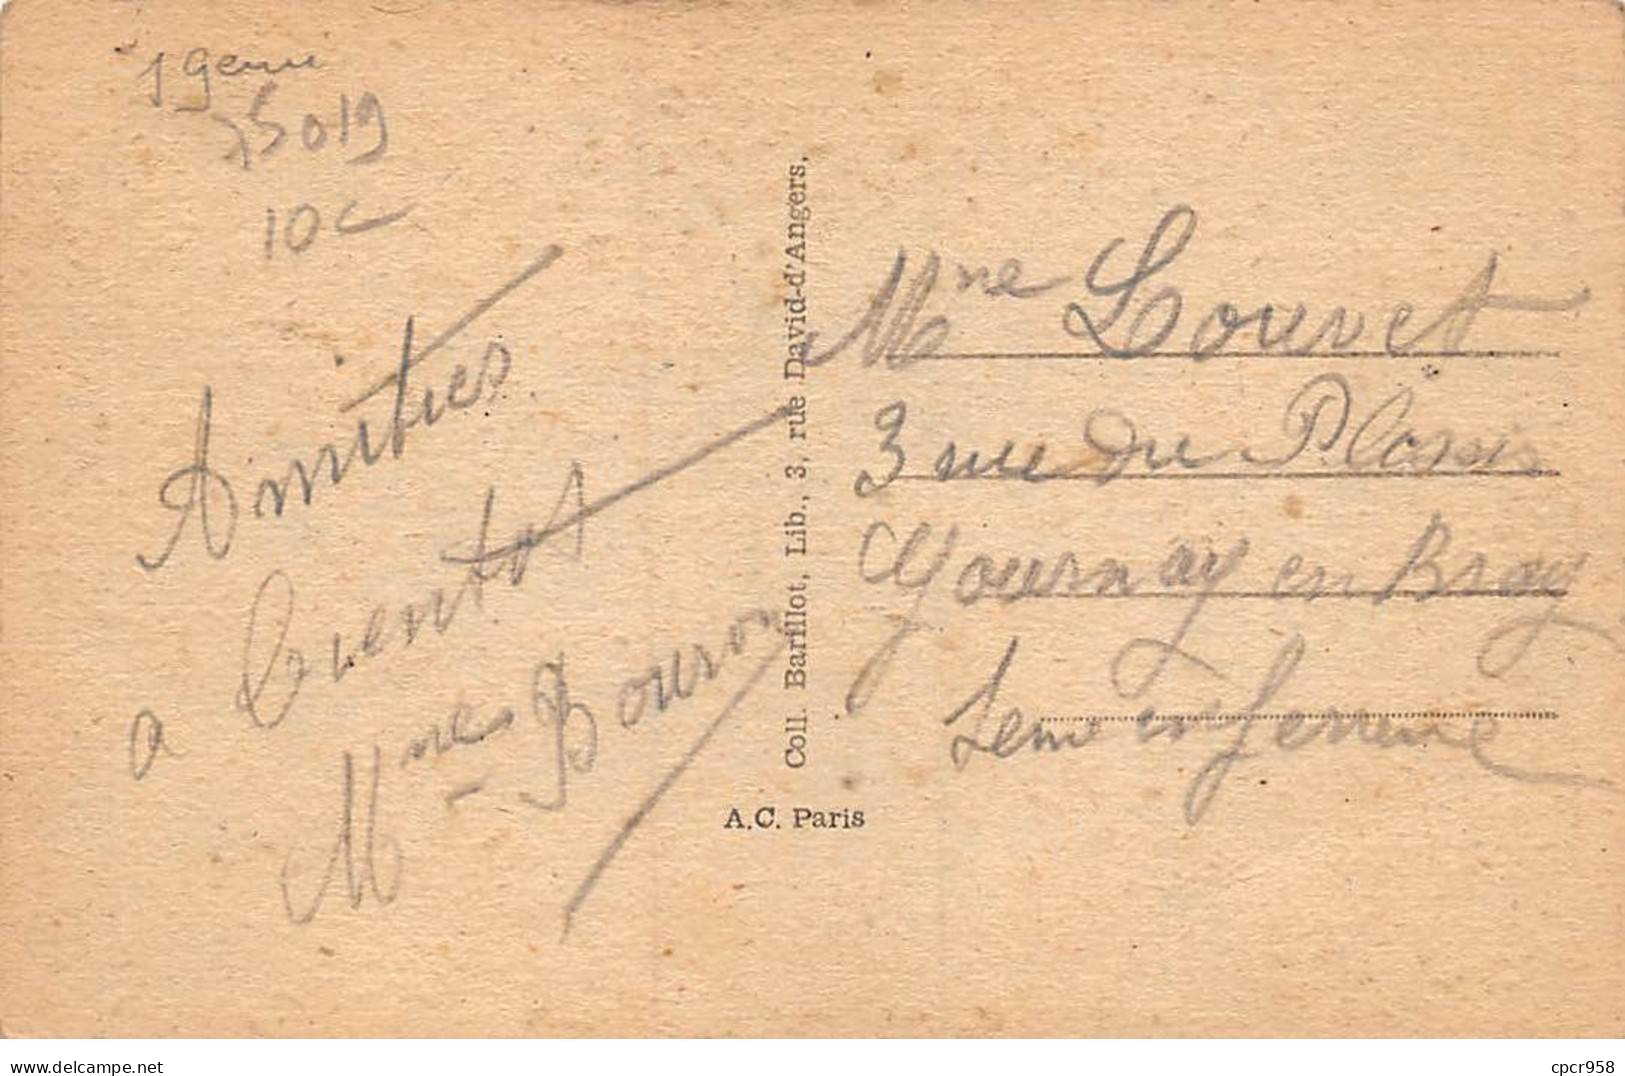 19eme
75019
10c
Amitiés
a bientot
Mmes Bouron
Coll. Barillot, Lib., 3, rue David-d'Angers,
A.C. Paris
Mme Louvet
3 rue du Plessis
Gournay en Bray
Seine inferieure
delcampe.net
cpcr958